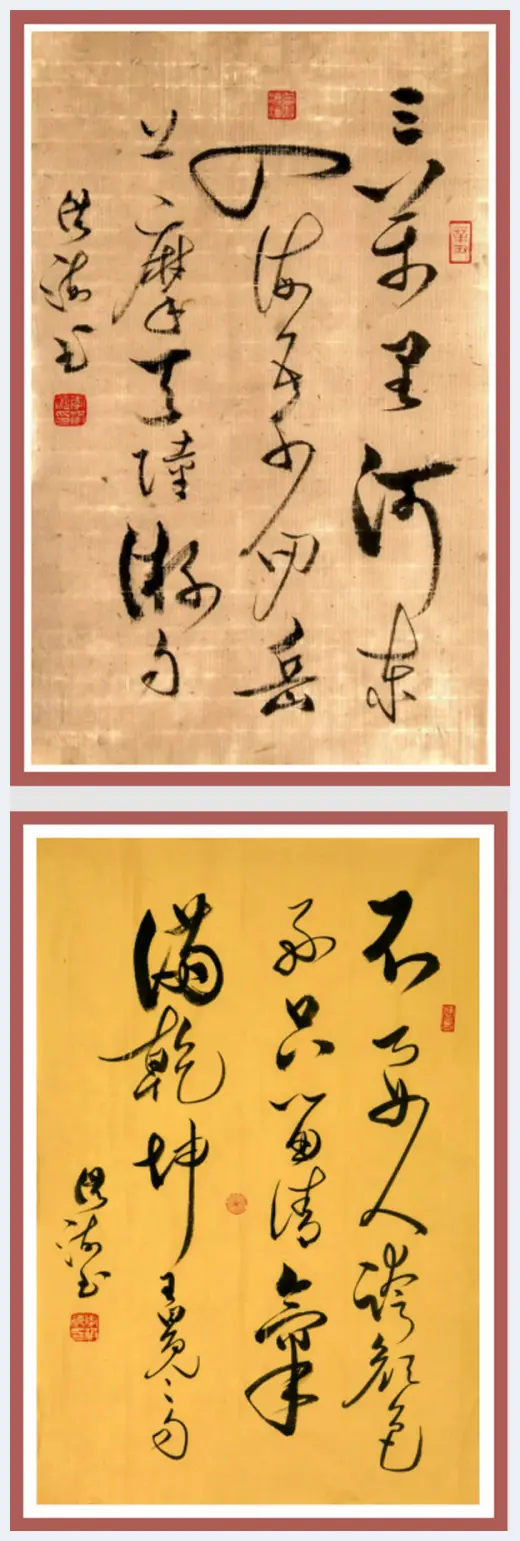 三萬里河東
入海五千仞岳
上摩天陸游句
書
不要人誇顏色
好只留清氣
滿乾坤王冕之句
書